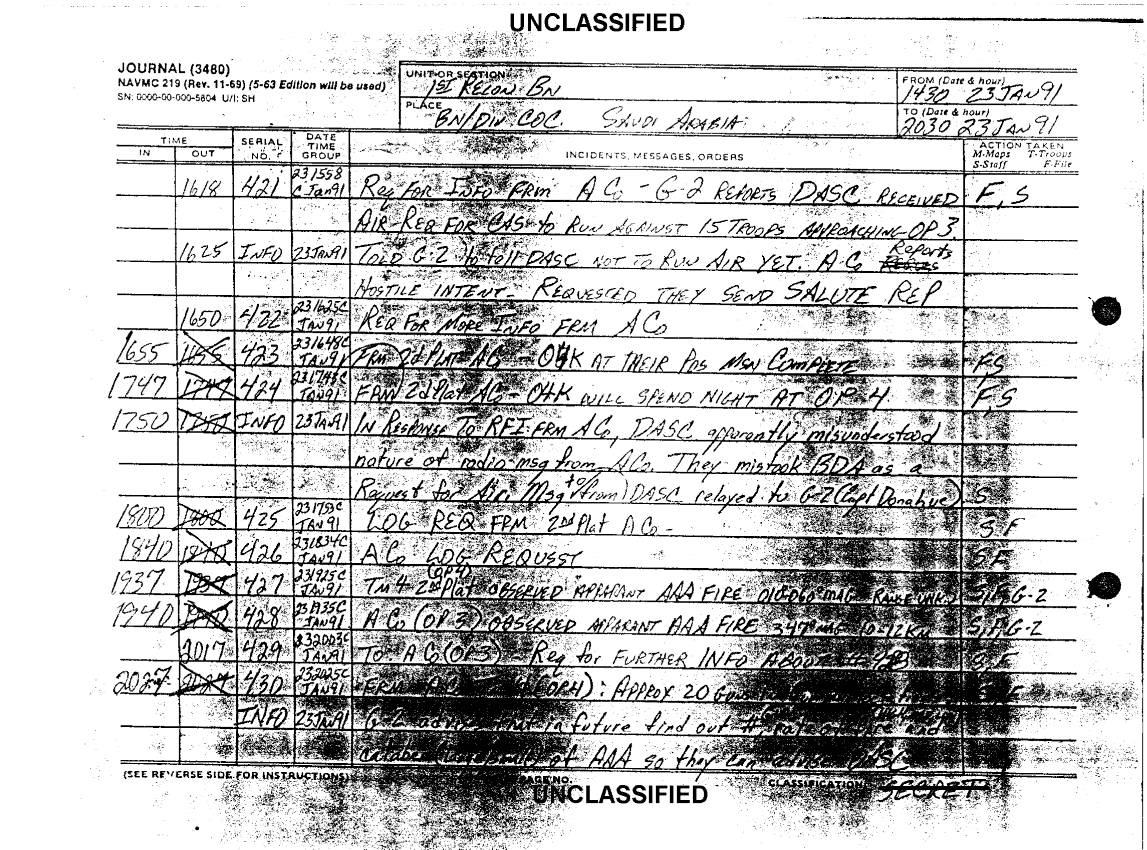 UNCLASSIFIED
JOURNAL (3480)
NAVMC 219 (Rev. 11-69) (5-63 Edition will be used)
SN: 0000-00-000-5804 U/I: SH
UNIT OR SECTION
1ST RECON BN
PLACE
BN/DIV COC. SAUDI ARABIA
FROM (Date & hour)
1430 23 JAN 91
TO (Date & hour)
2030 23 JAN 91
TIME
IN OUT
SERIAL NO.
DATE TIME GROUP
INCIDENTS, MESSAGES, ORDERS
ACTION TAKEN
M-Maps T-Troops
S-Staff F-File
1618 421 231558 C JAN91 Req FOR INFO FRM A CO - G-2 REPORTS DASC RECEIVED F, S
AIR REQ FOR CAS to RUN AGAINST 15 TROOPS APPROACHING OP 3.
1625 INFO 23JAN91 TOLD G-2 to tell DASC NOT TO RUN AIR YET. A Co Reports
HOSTILE INTENT - REQUESTED THEY SEND SALUTE REP
1650 422 231625C JAN91 REQ FOR MORE INFO FRM A Co
1655 423 231648C JAN91 FRM 2d PLAT A Co - O4K AT THEIR POS MSN COMPLETE F,S
1747 424 231745C JAN91 FRM 2d Plat A Co - O4K WILL SPEND NIGHT AT OP 4 F,S
1750 INFO 23JAN91 IN RESPONSE TO RFI FRM A Co, DASC apparently misunderstood
nature of radio msg from A Co. They mistook BDA as a
Request for Air. Msg to/(from) DASC relayed to G-2 (Capt Donahue) S
1800 1800 425 JAN91 LOG REQ FRM 2nd Plat A Co - S F
1840 1840 426 231834C JAN91 A Co LOG REQUEST S F
1937 1937 427 231925C JAN91 TM 4 2nd Plat (OP4) OBSERVED APPARANT AAA FIRE MAG RANGE UNK S, F, G-2
1940 428 231935C JAN91 A Co (OP 3) OBSERVED APPARANT AAA FIRE 347° MAG 10-12 KM S, F, G-2
2017 429 232003C JAN91 TO A Co (OP3) - Req for FURTHER INFO ABOUT # S F
2027 430 232025C JAN91 FRM A Co : APPROX 20 F
INFO 23JAN91 G-2 advises that in future find out # rate of fire and
of AAA so they can advise DASC
(SEE REVERSE SIDE FOR INSTRUCTIONS)
PAGE NO.
CLASSIFICATION
SECRET
UNCLASSIFIED